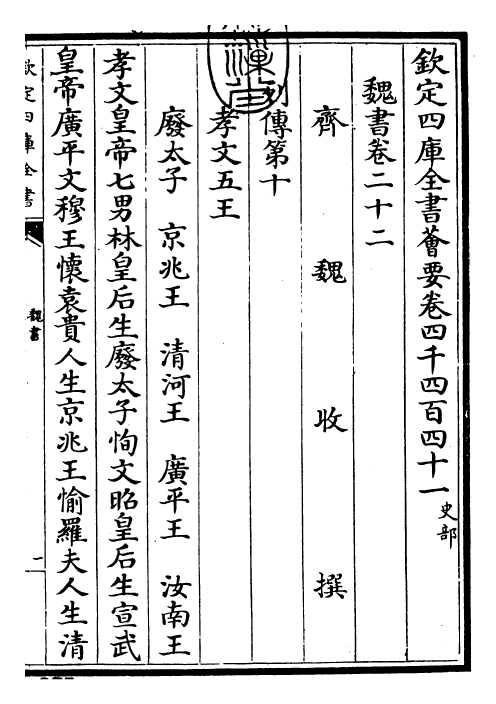 欽定四庫全書薈要卷四千四百四十一 史部
魏書卷二十二
齊 魏 收 撰
列傳第十
孝文五王
廢太子 京兆王 清河王 廣平王 汝南王
孝文皇帝七男林皇后生廢太子恂文昭皇后生宣武
皇帝廣平文穆王懷袁貴人生京兆王愉羅夫人生清
欽定四庫全書
魏書
一